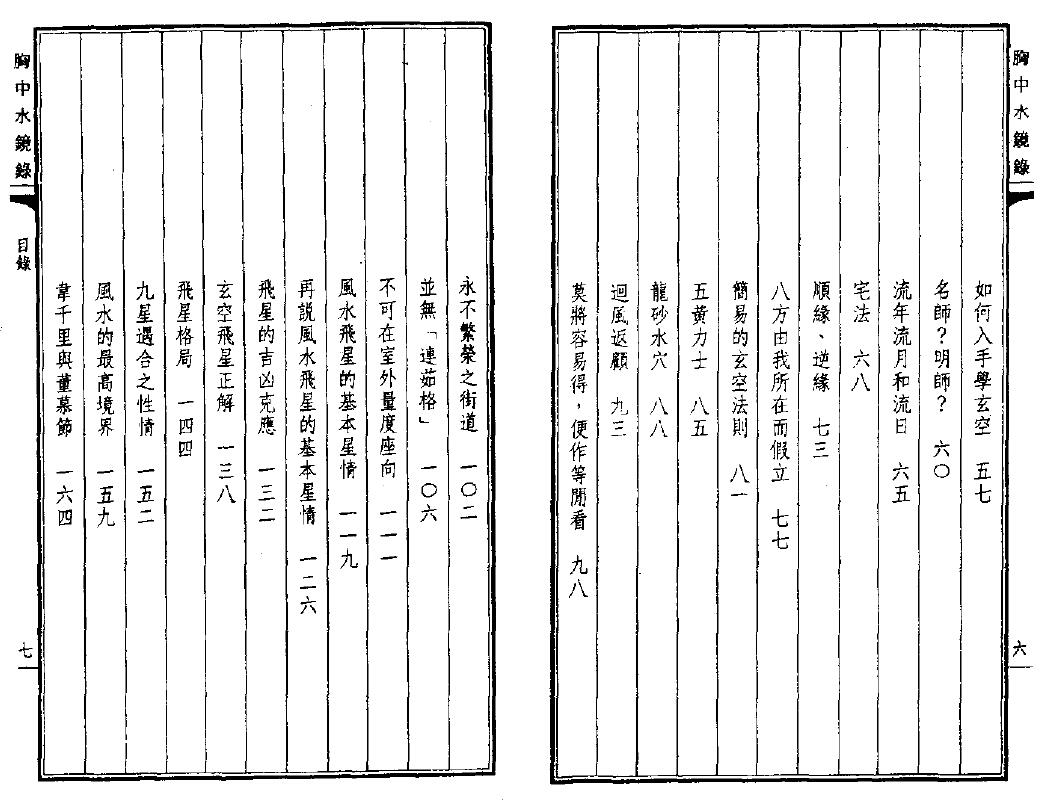 胸中水鏡錄
如何入手學玄空 五七
名師？明師？ 六〇
流年流月和流日 六五
宅法 六八
順緣、逆緣 七三
八方由我所在而假立 七七
簡易的玄空法則 八一
五黃力士 八五
龍砂水穴 八八
迴風返顧 九三
莫將容易得，便作等閒看 九八
六
永不繁榮之街道 一〇二
並無「連茹格」 一〇六
不可在室外量度座向 一一一
風水飛星的基本星情 一一九
再說風水飛星的基本星情 一二六
飛星的吉凶克應 一三二
玄空飛星正解 一三八
飛星格局 一四四
九星遇合之性情 一五二
風水的最高境界 一五九
韋千里與董慕節 一六四
胸中水鏡錄
目錄
七